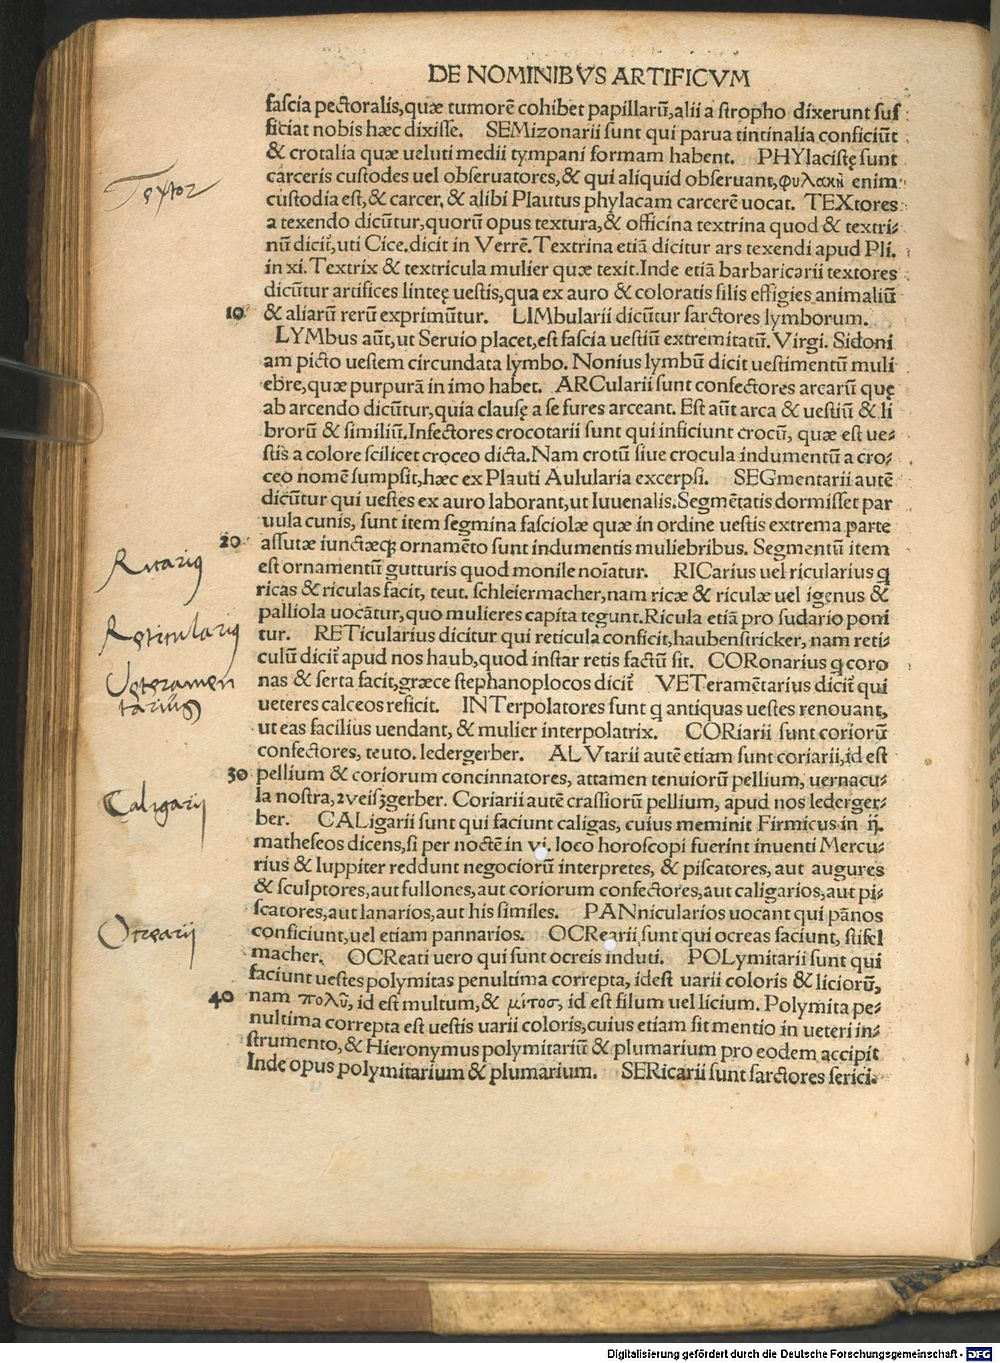 DE NOMINIBVS ARTIFICVM
fascia pectoralis,quæ tumorē cohibet papillarū,alii a stropho dixerunt suf
ficiat nobis hæc dixisse. SEMizonarii sunt qui parua tintinalia conficiūt
& crotalia quæ ueluti medii tympani formam habent. PHYlacistę sunt
carceris custodes uel obseruatores,& qui aliquid obseruant,φυλακὴ enim
custodia est,& carcer, & alibi Plautus phylacam carcerē uocat. TEXtores
Textor
a texendo dicūtur,quorū opus textura,& officina textrina quod & textri⸗
nū dicit̃,uti Cice.dicit in Verrē.Textrina etiā dicitur ars texendi apud Pli.
in xi.Textrix & textricula mulier quæ texit.Inde etiā barbaricarii textores
dicūtur artifices linteę uestis,qua ex auro & coloratis filis effigies animaliū
10 & aliarū rerū exprimūtur. LIMbularii dicūtur sarctores lymborum.
LYMbus aūt,ut Seruio placet,est fascia uestiū extremitatū.Virgi. Sidoni
am picto uestem circundata lymbo. Nonius lymbū dicit uestimentū muli
ebre,quæ purpurā in imo habet. ARCularii sunt confectores arcarū quę
ab arcendo dicūtur,quia clausę a se fures arceant. Est aūt arca & uestiū & li
brorū & similiū.Infectores crocotarii sunt qui inficiunt crocū, quæ est ue⸗
stis a colore scilicet croceo dicta.Nam crotū siue crocula indumentū a cro⸗
ceo nomē sumpsit,hæc ex Plauti Aulularia excerpsi. SEGmentarii autē
dicūtur qui uestes ex auro laborant,ut Iuuenalis.Segmētatis dormisset par
uula cunis, sunt item segmina fasciolæ quæ in ordine uestis extrema parte
20 assutæ iunctæq; ornamēto sunt indumentis muliebribus. Segmentū item
est ornamentū gutturis quod monile noīatur. RICarius uel ricularius q̄
Ricarius
ricas & riculas facit, teut. schleiermacher,nam ricæ & riculæ uel igenus &
palliola uocātur,quo mulieres capita tegunt.Ricula etiā pro sudario poni
tur. RETicularius dicitur qui reticula conficit,haubenstricker, nam reti⸗
Reticularius
culū dicit̃ apud nos haub,quod instar retis factū sit. CORonarius q̄ coro
nas & serta facit,græce stephanoplocos dicit̃ VETeramētarius dicit̃ qui
Veteramen
tarius
ueteres calceos reficit. INTerpolatores sunt q̄ antiquas uestes renouant,
ut eas facilius uendant, & mulier interpolatrix. CORiarii sunt coriorū
confectores, teuto. ledergerber. ALVtarii autē etiam sunt coriarii,id est
30 pellium & coriorum concinnatores, attamen tenuiorū pellium, uernacu⸗
la nostra, ꝛveiszgerber. Coriarii autē crassiorū pellium, apud nos lederger⸗
Caligarij
ber. CALigarii sunt qui faciunt caligas, cuius meminit Firmicus in ij.
matheseos dicens,si per noctē in vi. loco horoscopi fuerint inuenti Mercu⸗
rius & Iuppiter reddunt negociorū interpretes, & piscatores, aut augures
& sculptores,aut fullones,aut coriorum confectores,aut caligarios,aut pi⸗
scatores,aut lanarios,aut his similes. PANnicularios uocant qui pānos
conficiunt,uel etiam pannarios. OCRearii sunt qui ocreas faciunt, stifel
Ocrearij
macher. OCReati uero qui sunt ocreis induti. POLymitarii sunt qui
faciunt uestes polymitas penultima correpta, idest uarii coloris & liciorū,
40 nam πολὺ, id est multum,& μίτοσ, id est filum uel licium. Polymita pe⸗
nultima correpta est uestis uarii coloris,cuius etiam fit mentio in ueteri in⸗
strumento,& Hieronymus polymitariū & plumarium pro eodem accipit
Inde opus polymitarium & plumarium. SERicarii sunt sarctores serici.
Digitalisierung gefördert durch die Deutsche Forschungsgemeinschaft - DFG